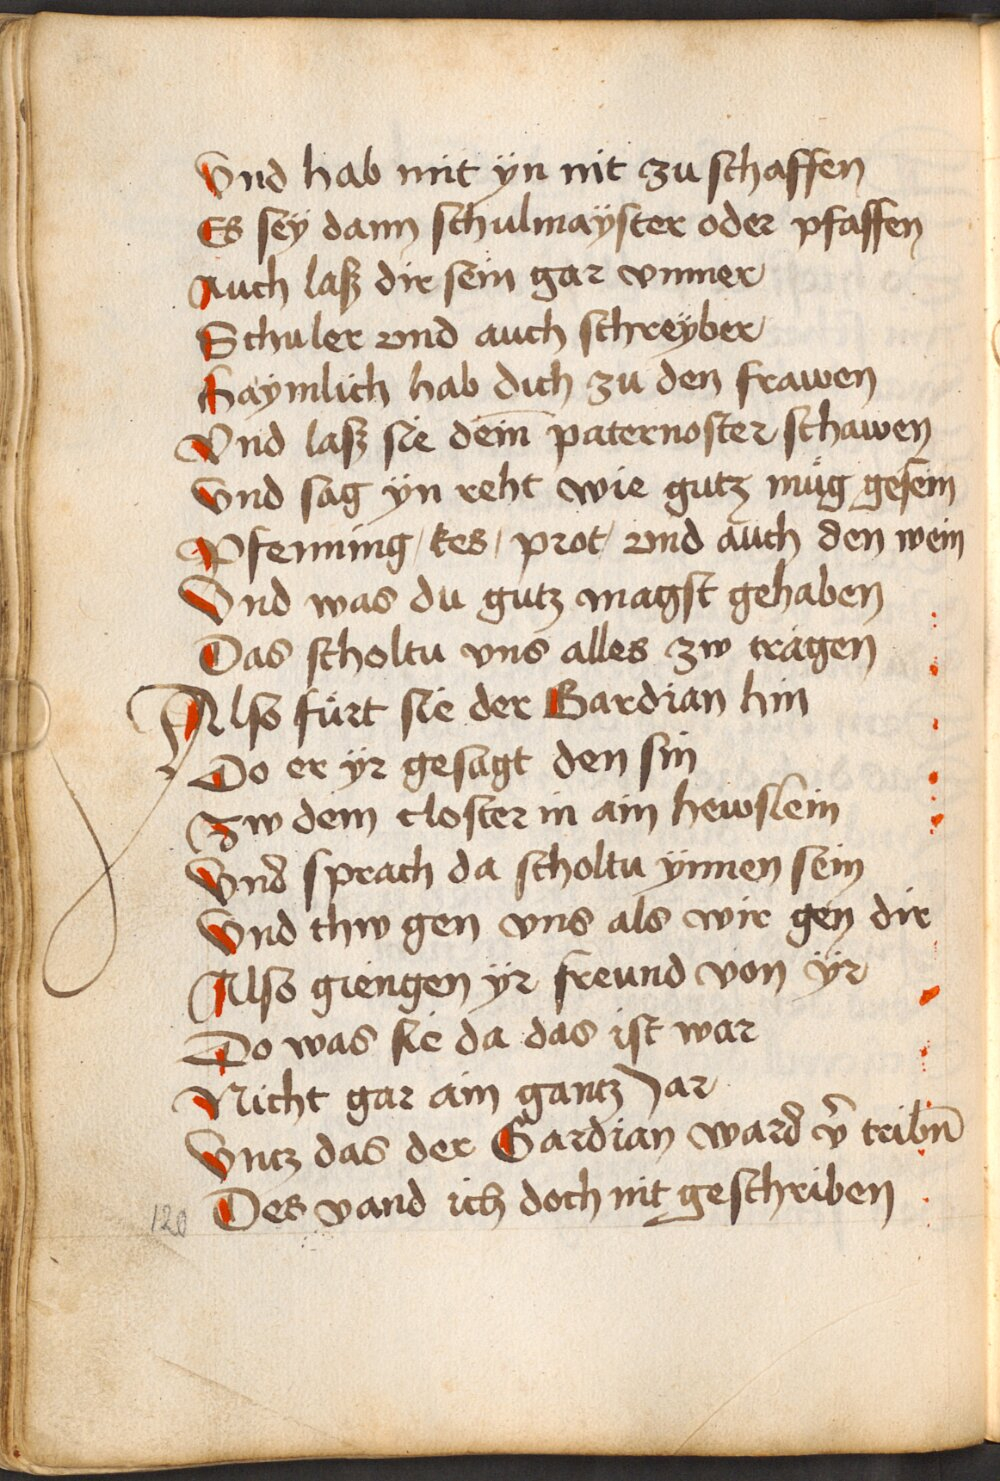 Vnd hab mit ÿn nit zu schaffen
Es seÿ dann schulmaÿster oder pfaffen
Auch lasz dir sein gar vnmer
Schuler vnd auch schreÿber
Haÿmlich hab dich zu den frawen
Vnd lasz sie dein̅ paternoster schawen
Vnd sag ÿn reht wie gutz müg gesein
Pfenning / kes / prot / vnd auch den wein
Vnd was du gutz magst gehaben
Das scholtu vns alles zw tragen
Also fürt sie der Gardian hin
Do er ÿr gesagt den sin
Zw dem closter in ain hewslein
Vnd sprach da scholtu ÿnnen sein
Vnd thw gen vns als wir gen dir
Also giengen ÿr freund von ÿr
Do was sie da das ist war
Nicht gar ain gantz Jar
Vntz das der Gardian ward v̄ tribn̄
Des vand ich doch nit geschriben
120